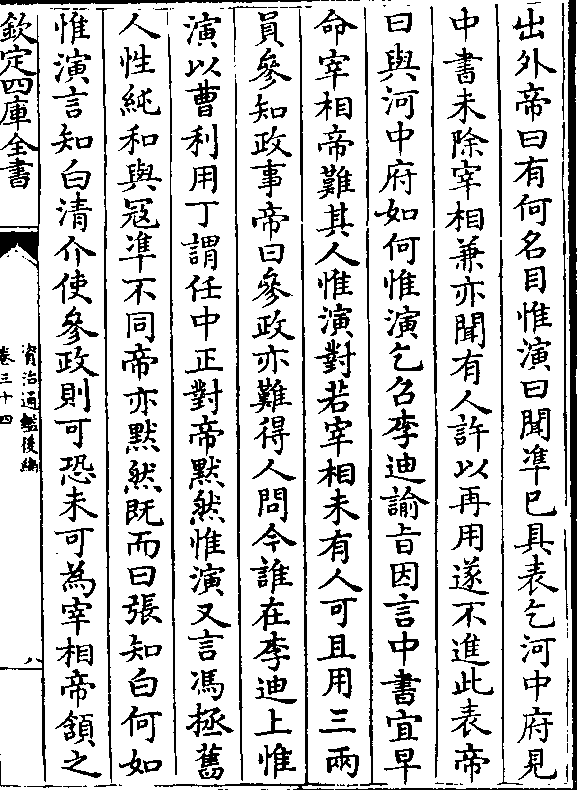 出外帝曰有何名目惟演曰聞凖已具表乞河中府見
中書未除宰相兼亦聞有人許以再用遂不進此表帝
曰與河中府如何惟演乞召李迪諭㫖因言中書宜早
命宰相帝難其人惟演對若宰相未有人可且用三兩
員參知政事帝曰參政亦難得人問今誰在李迪上惟
演以曹利用丁謂任中正對帝黙然惟演又言馮拯舊
人性純和與冦凖不同帝亦黙然既而曰張知白何如
惟演言知白清介使參政則可恐未可為宰相帝頷之
欽定四庫全書
資治通鑑後編
卷三十四
八